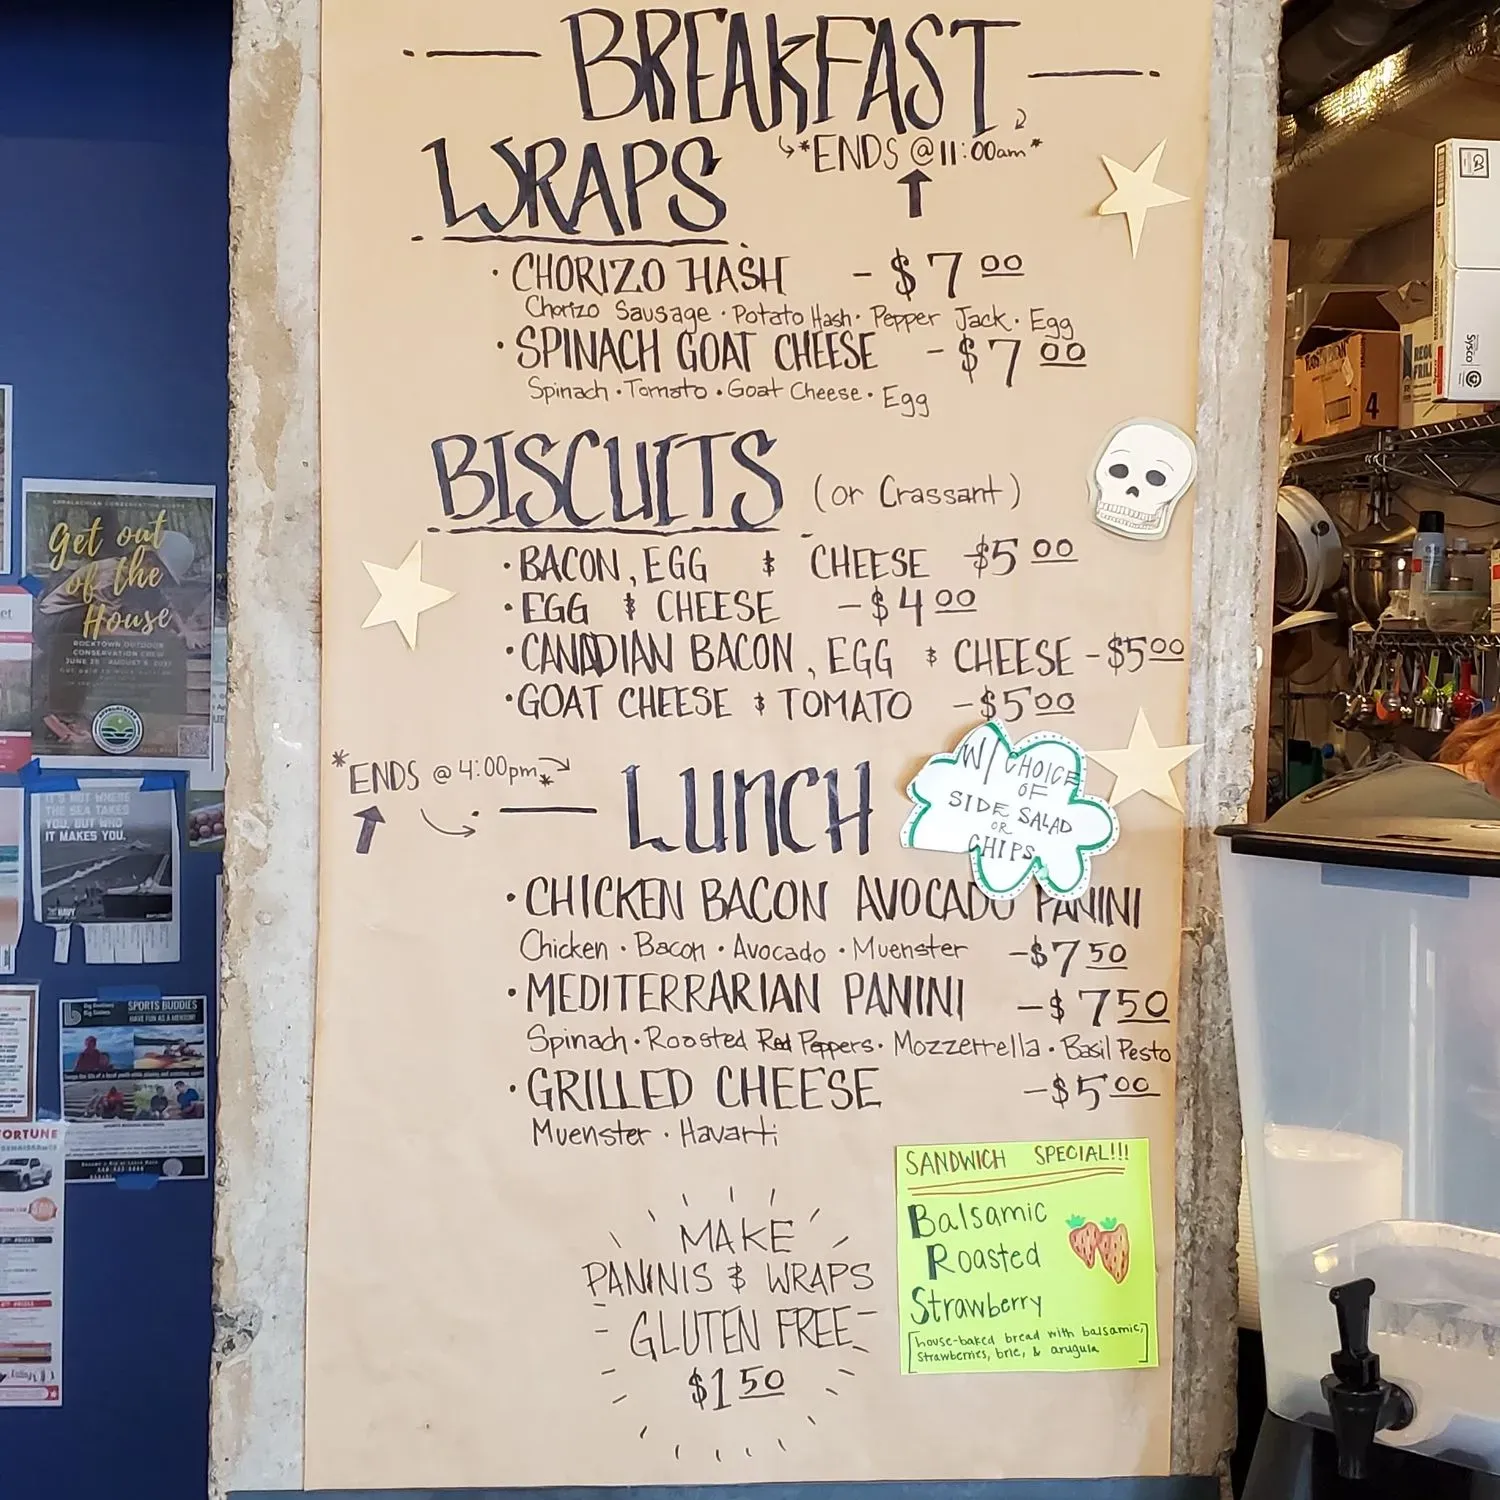 BREAKFAST
*ENDS @ 11:00am*
WRAPS
· CHORIZO HASH - $7 00
Chorizo Sausage · Potato Hash · Pepper Jack · Egg
· SPINACH GOAT CHEESE - $7 00
Spinach · Tomato · Goat Cheese · Egg
BISCUITS (or Crassant)
· BACON, EGG & CHEESE $5 00
· EGG & CHEESE - $4 00
· CANADIAN BACON, EGG & CHEESE - $5 00
· GOAT CHEESE & TOMATO - $5 00
*ENDS @ 4:00pm*
LUNCH
W/ CHOICE
OF
SIDE SALAD
OR
CHIPS
· CHICKEN BACON AVOCADO PANINI
Chicken · Bacon · Avocado · Muenster - $7 50
· MEDITERRARIAN PANINI - $7 50
Spinach · Roosted Red Peppers · Mozzerrella · Basil Pesto
· GRILLED CHEESE - $5 00
Muenster · Havarti
MAKE
PANINIS & WRAPS
GLUTEN FREE
$1 50
SANDWICH SPECIAL!!!
Balsamic
Roasted
Strawberry
[house-baked bread with balsamic,
strawberries, brie, & arugula]
Get out
of the
House
ROCKTOWN OUTDOOR
CONSERVATION CREW
IT'S NOT WHERE
THE SEA TAKES
YOU, BUT WHO
IT MAKES YOU.
NAVY
SPORTS BUDDIES
HAVE FUN AS A MENTOR!
FORTUNE
4
Sysco